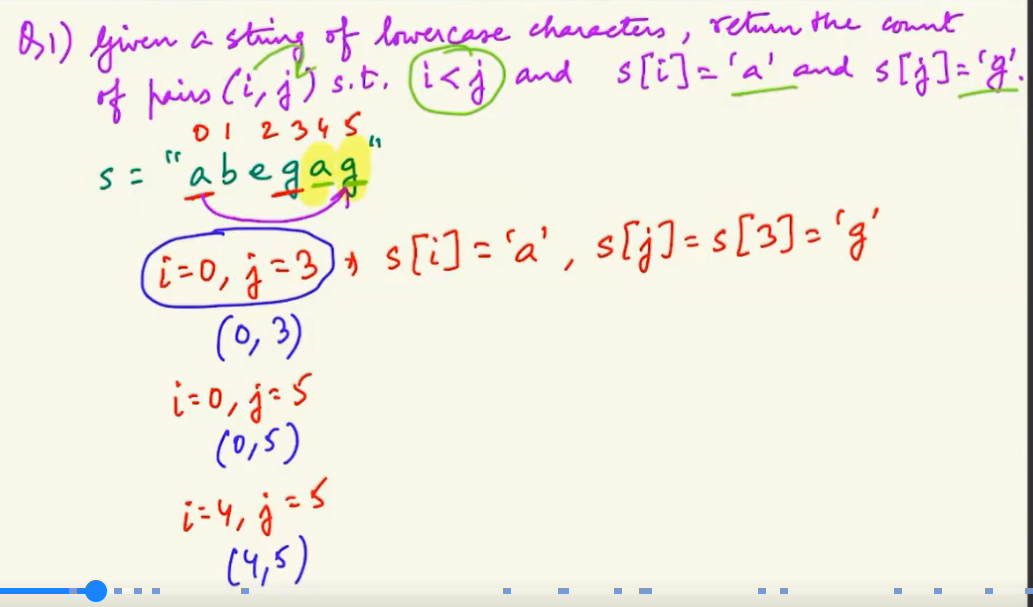 Q1) Given a string of lowercase characters, return the count
of pairs (i, j) s.t. i < j and s[i] = 'a' and s[j] = 'g'.
0 1 2 3 4 5
s = "abegag"
i=0, j=3 → s[i] = 'a', s[j] = s[3] = 'g'
(0, 3)
i=0, j=5
(0,5)
i=4, j=5
(4,5)